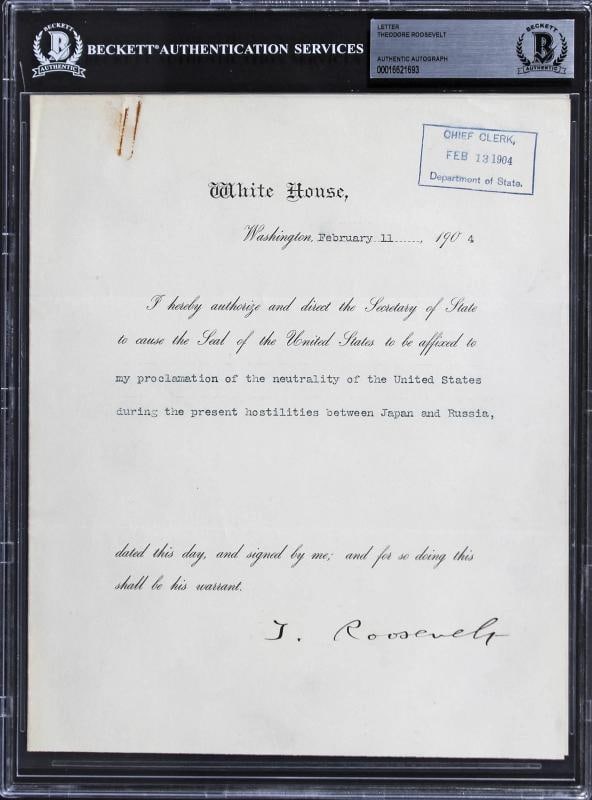 BECKETT
B
AUTHENTIC
BECKETT® AUTHENTICATION SERVICES
LETTER
THEODORE ROOSEVELT
AUTHENTIC AUTOGRAPH
00016621693
BECKETT
B
AUTHENTIC
CHIEF CLERK,
FEB 13 1904
Department of State.
White House,
Washington, February 11......, 1904
I hereby authorize and direct the Secretary of State
to cause the Seal of the United States to be affixed to
my proclamation of the neutrality of the United States
during the present hostilities between Japan and Russia,
dated this day, and signed by me; and for so doing this
shall be his warrant.
T. Roosevelt